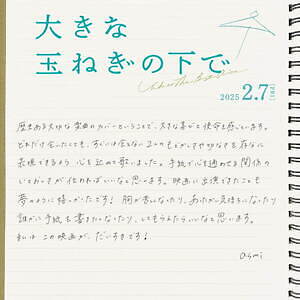 大きな
玉ねぎの下で
Under The Big Onion
2025 2.7 [FRI]
歴史ある大切な楽曲のカバーということで、大きな喜びと使命を感じています。
どれだけ会いたくても、すぐには会えない2人のもどかしさや切なさを存分に
表現できるよう心を込めて歌いました。手紙で心を通わせる関係の
いとおしさが伝わればいいなと思います。映画に出演できたことも
夢のように嬉しかったです！胸が苦しくなったり、あたたかい気持ちになったり
誰かに手紙を書きたくなったり、してもらえたらいいなと思います。
私は この映画が、だいすきです！
asmi